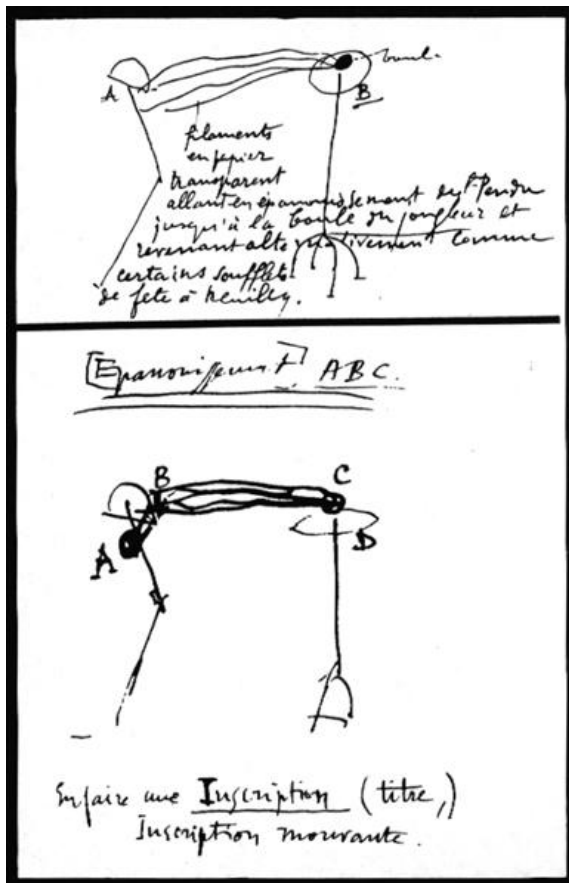 boule
A
B
filaments
en papier
transparent
allant en épanouissement du Pendu
jusqu'à la boule du jongleur et
revenant alternativement comme
certains soufflets
de fête à Neuilly.
[Epanouissement] ABC.
B
C
A
D
En faire une Inscription (titre,)
Inscription mouvante.